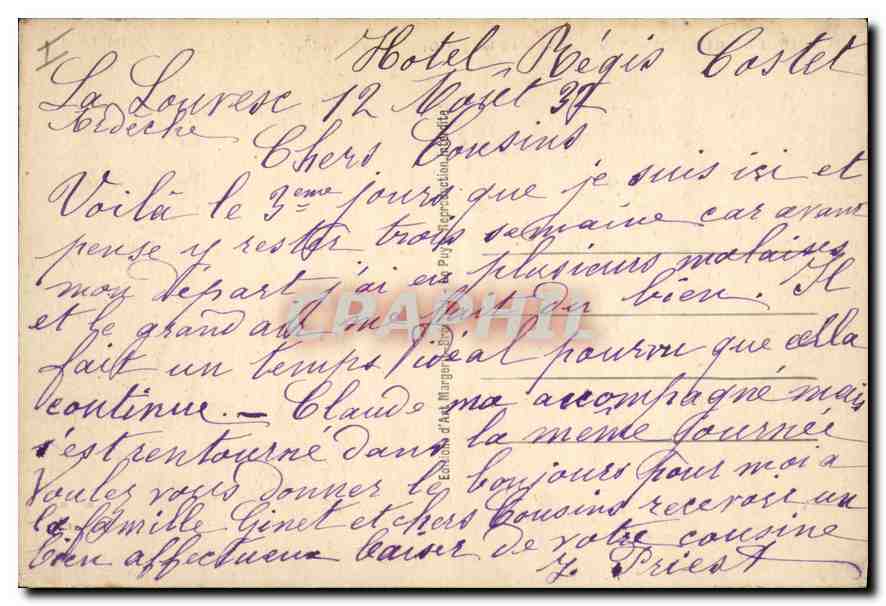 Hotel Régis Costet
La Louvesc 12 Août 37
Ardèche
Chers Cousins
Voilà le 3eme jours que je suis ici et
pense y rester trois semaine car avant
mon départ j'ai eu plusieurs malaises
et le grand air me fait du bien. Il
fait un temps idéal pourvu que cella
continue. - Claude ma accompagné mais
s'est rentourné dans la même journée
Voulez vous donner le bonjours pour moi a
la famille Ginet et chers Cousins recevoir un
bien affectueux baiser de votre cousine
J. Priest
Editions d'Art Margerit-Bremond - Le Puy - Reproduction Interdite
CPAPHIL